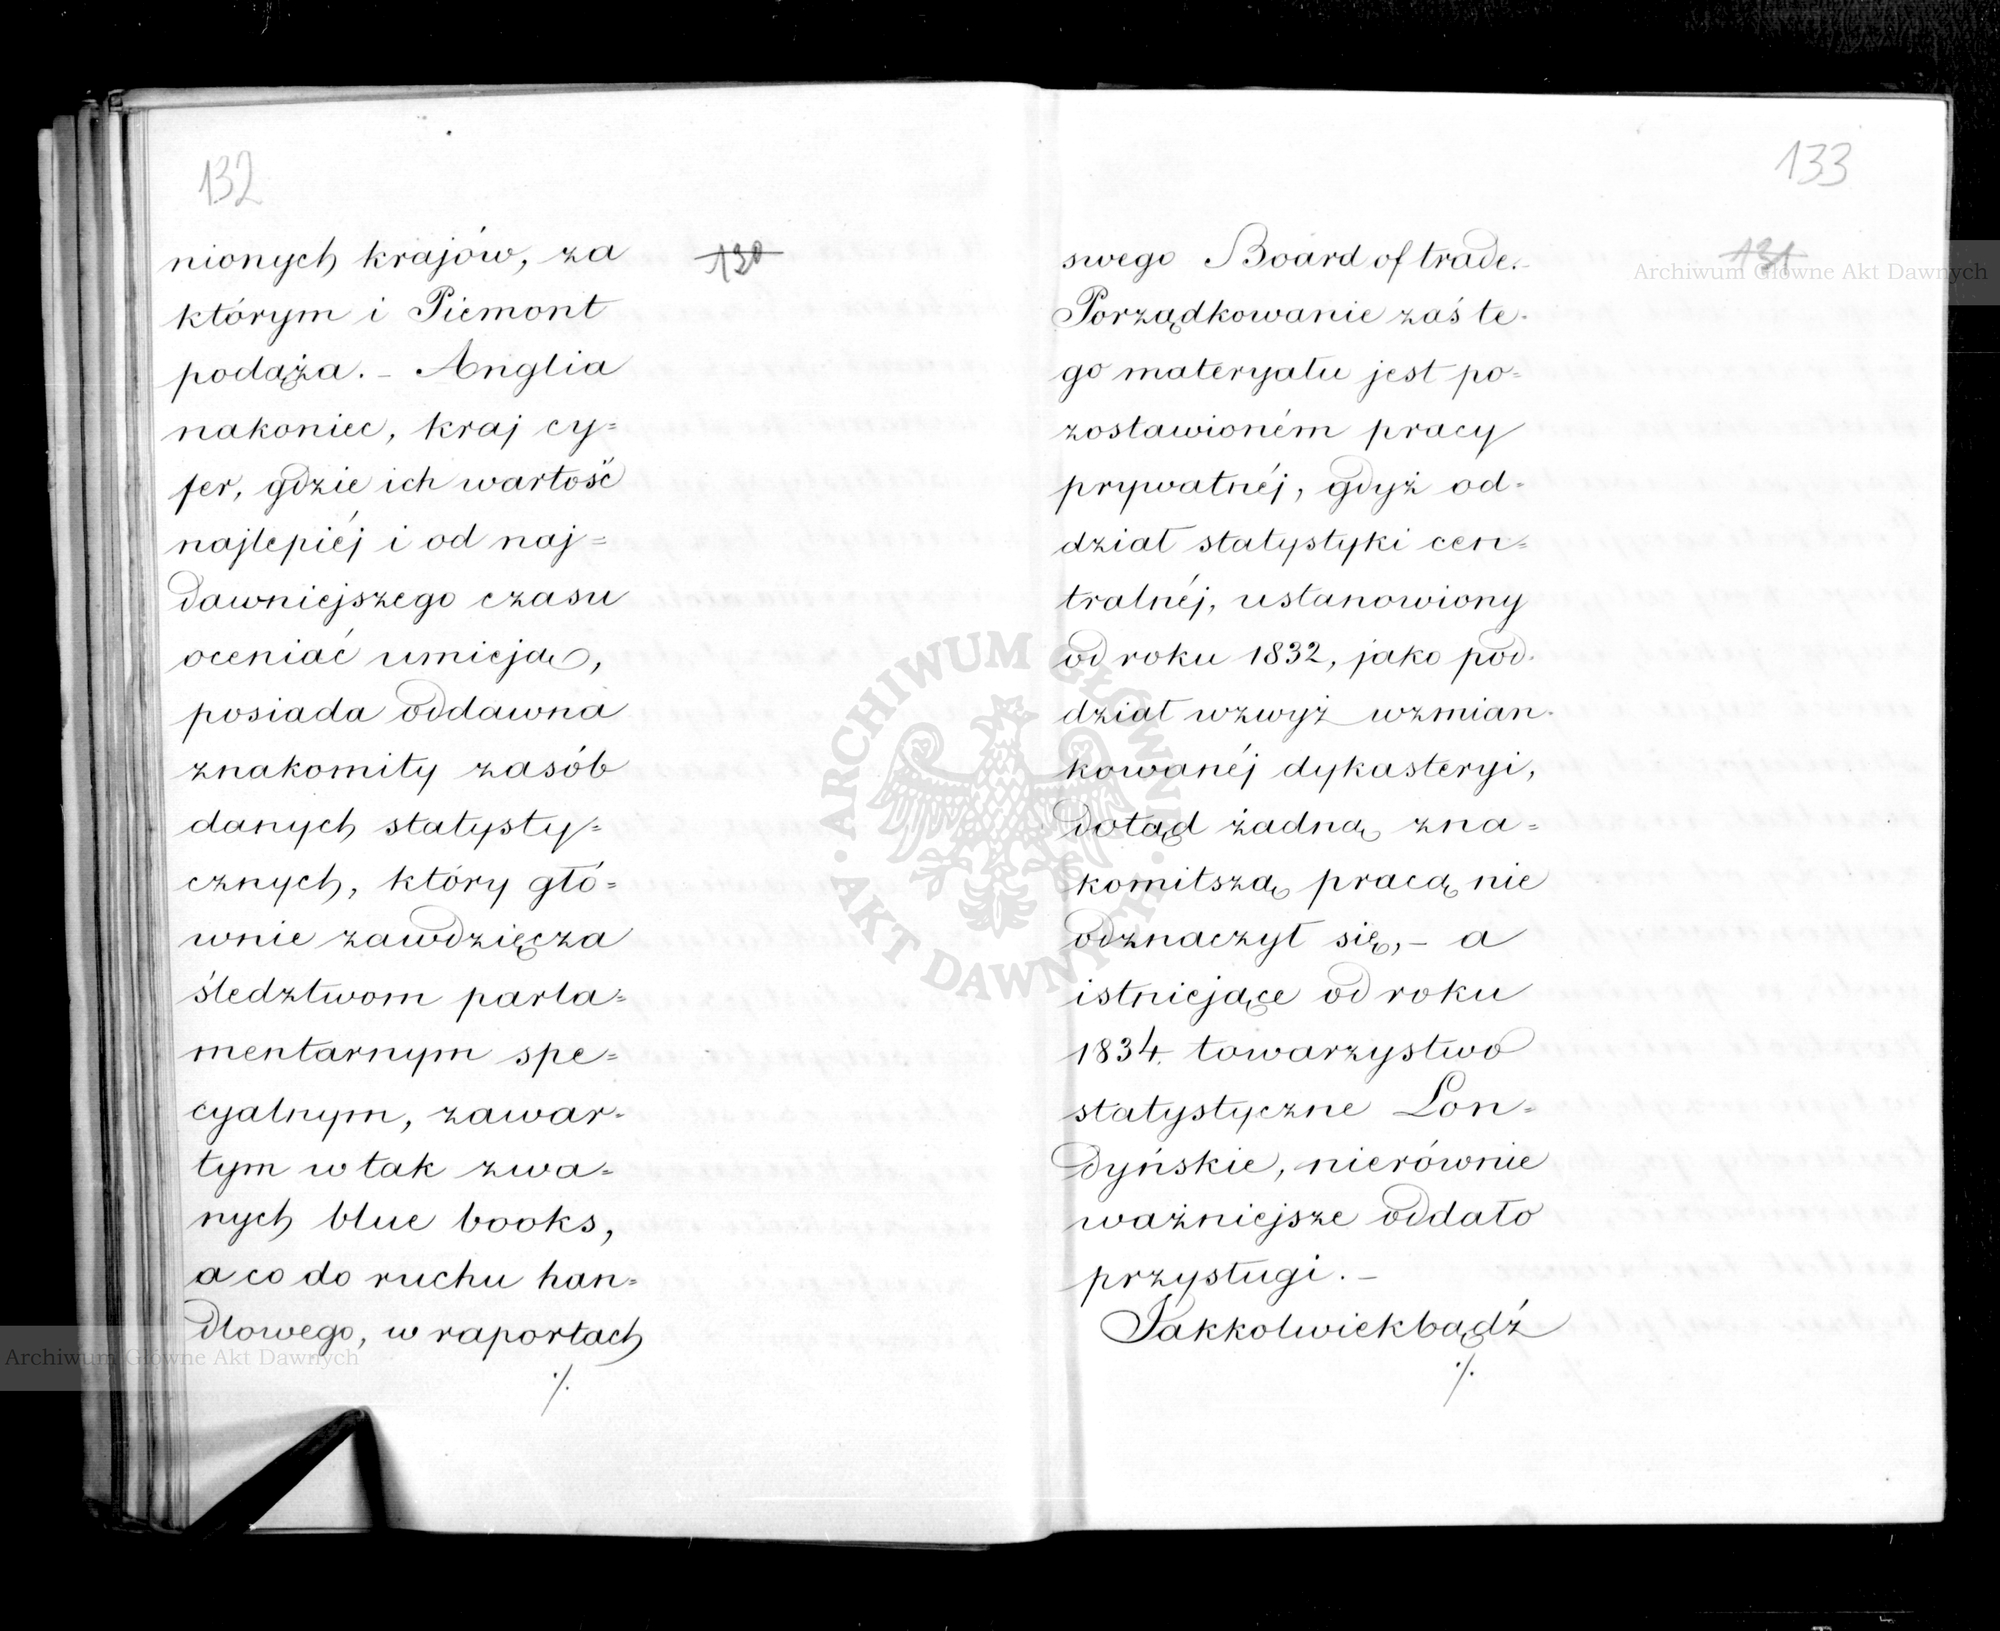 132
130
nionych krajów, za
którym i Piemont
podąża. – Anglia
nakoniec, kraj cy=
fer, gdzie ich wartość
najlepiéj i od naj=
dawniejszego czasu
oceniać umieją,
posiada oddawna
znakomity zasób
danych statysty=
cznych, który głó=
wnie zawdzięcza
śledztwom parla=
mentarnym spe=
cyalnym, zawar=
tym w tak zwa=
nych blue books,
a co do ruchu han=
dlowego, w raportach
./.
133
131
swego Board of trade. –
Porządkowanie zaś te=
go materyału jest po=
zostawioném pracy
prywatnéj, gdyż od=
dział statystyki cen=
tralnéj, ustanowiony
od roku 1832, jako pod=
dział wzwyż wzmian=
kowanéj dykasteryi,
dotąd żadną zna=
komitszą pracą nie
odznaczył się, – a
istniejące od roku
1834. towarzystwo
statystyczne Lon=
dyńskie, nierównie
ważniejsze oddało
przysługi. –
Jakkolwiekbądź
./.
ARCHIWUM GŁÓWNE · AKT DAWNYCH ·
Archiwum Główne Akt Dawnych
Archiwum Główne Akt Dawnych